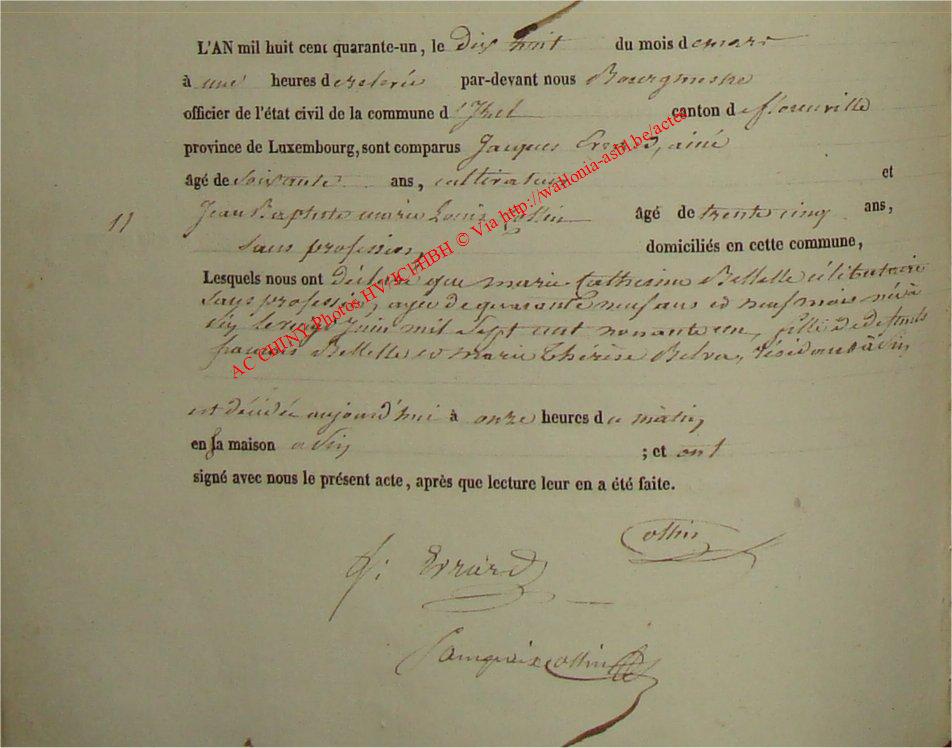 L'AN mil huit cent quarante-un, le Dix huit du mois de mars
à une heures de relevée par-devant nous Bourgmestre
officier de l'état civil de la commune d'Izel canton de florenville
province de Luxembourg, sont comparus Jacques Errard, ainé
âgé de soixante ans, cultivateur et
11 Jean Baptiste marie Louis ollin âgé de trente cinq ans,
sans profession, domiciliés en cette commune,
Lesquels nous ont déclaré que marie Catherine Bellelle célibataire
sans profession, agée de quarante neuf ans et neuf mois née à
le vingt Juin mil sept cent nonante un, fille de defunts
françois Bellelle et marie thérèse, résidant à
est décédée aujourd'hui à onze heures du matin,
en sa maison a ; et ont
signé avec nous le présent acte, après que lecture leur en a été faite.
ollin
J: Errard
ollin
AC CHINY Photos HV-JCH-HBH © Via http://wallonia-asbl.be/actes